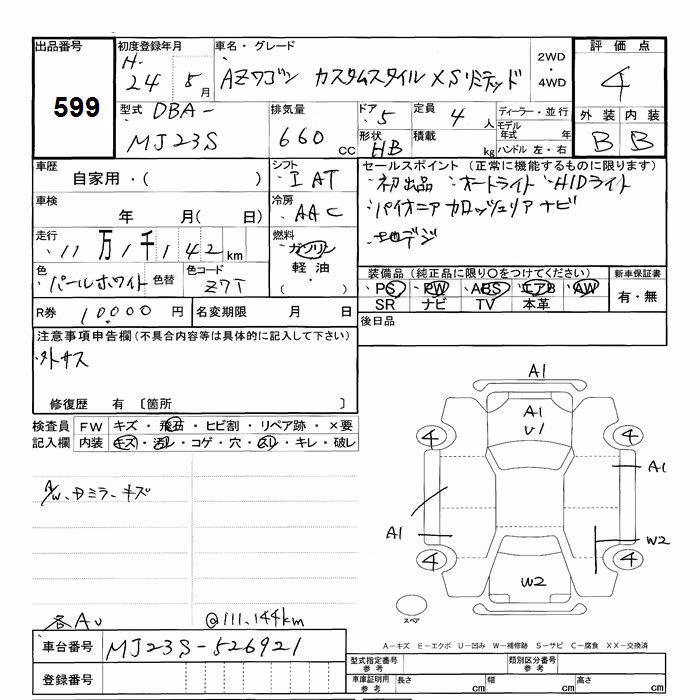 出品番号 初度登録年月 車名・グレード 2WD ・ 4WD 評価点
599
H. 24 5月 AZワゴン カスタムスタイル XSリミテッド 4
型式 DBA- 排気量 ドア 5 定員 4人 ディーラー・並行 外装 内装
MJ23S 660 CC 形状 HB 積載 kg モデル年式 年 B B
ハンドル 左・右
車歴 シフト セールスポイント (正常に機能するものに限ります)
自家用・( ) I AT ・初出品 ・オートライト ・HIDライト
車検 冷房 ・パイオニア カロッツェリア ナビ
年 月( 日) AAC
走行 燃料 ・地デジ
11万1千142km ガソリン
色 色替 色コード 軽油 装備品 (純正品に限り○をつけてください) 新車保証書
パールホワイト Z7T ・( ) PS PW ABS エアB AW 有・無
SR ナビ TV 本革
R券 10000円 名変期限 月 日 後日品
注意事項申告欄(不具合内容等は具体的に記入して下さい)
外サス
修復歴 有 〔箇所 〕
検査員 FW キズ・飛石・ヒビ割・リペア跡・×要
記入欄 内装 キズ・汚レ・コゲ・穴・スレ・キレ・破レ
A/W、Dミラーキズ
A1
A1
U1
4 4
A1
A1
W2
4 4
W2
スペア
各AU @111,144km
車台番号 MJ23S-526921
A－キズ E－エクボ U－凹み W－補修跡 S－サビ C－腐食 XX－交換済
登録番号
型式指定番号 参考 類別区分番号 参考
車庫証明用 参考 長さ cm 幅 cm 高さ cm